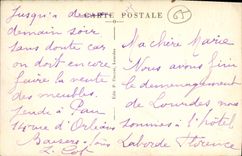 CARTE POSTALE
Jusqu'à
demain soir
sans doute car
on doit encore
faire la vente
des meubles.
Jeudi à Pau
14 rue d'Orléans
Baisers
Ma chère Marie
Nous avons fini
le déménagement
de Lourdes, nous
sommes à l'hôtel
Laborde Florence